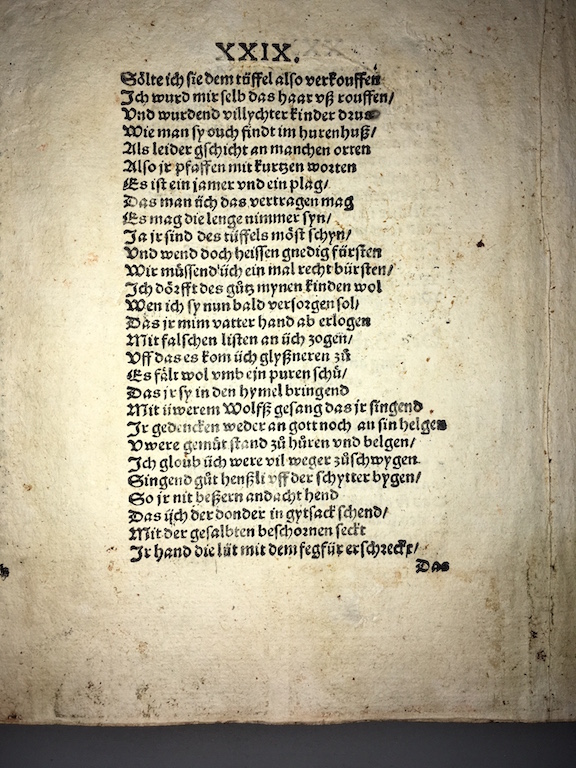 XXIX.
Sölte ich sie dem tüffel also verkouffen
Ich wurd mir selb das haar vß rouffen/
Vnd wurdend villychter kinder drus
Wie man sy ouch findt im hurenhuß/
Als leider gschicht an manchen orten
Also jr pfaffen mit kurtzen worten
Es ist ein jamer vnd ein plag/
Das man üch das vertragen mag
Es mag die lenge nimmer syn/
Ja jr sind des tüffels möst schyn/
Vnd wend doch heissen gnedig fürsten
Wir müssend üch ein mal recht bürsten/
Ich dörfft des gůtz mynen kinden wol
Wen ich sy nun bald versorgen sol/
Das jr mim vatter hand ab erlogen
Mit falschen listen an üch zogen/
Vff das es kom üch glyßneren zů
Es fält wol vmb ein puren schů/
Das jr sy in den hymel bringend
Mit üwerem Wolffß gesang das jr singend
Ir gedencken weder an gott noch an sin helgen
Vwere gemüt stand zů hůren vnd belgen/
Ich gloub üch were vil weger zůschwygen
Singend gůt henßli vff der schytter bygen/
So jr nit beßern andacht hend
Das üch der donder in gytsack schend/
Mit der gesalbten beschornen seckt
Ir hand die lüt mit dem fegfür erschreckt/
Das